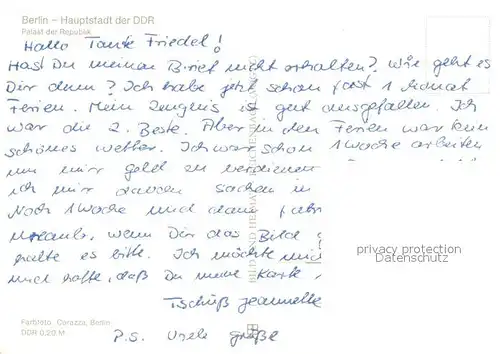 Berlin – Hauptstadt der DDR
Palast der Republik
Hallo Tante Friedel!
Hast Du meinen Brief nicht erhalten? Wie geht es
Dir denn? Ich habe jetzt schon fast 1 Monat
Ferien. Mein Zeugnis ist gut ausgefallen. Ich
war die 2. Beste. Aber in den Ferien war kein
schönes Wetter. Ich war schon 1 Woche arbeiten
um mir Geld zu verdienen
ich mir davon Sachen in
Noch 1 Woche und dann fahr
Urlaub. Wenn Dir das Bild
halte es bitte. Ich möchte
und hoffe, daß Du meine Karte
Tschüß Jeannette
P.S. Viele Grüße
Farbfoto: Carozza, Berlin
DDR 0,20 M
BILD UND HEIMAT REICHENBACH
privacy protection
Datenschutz